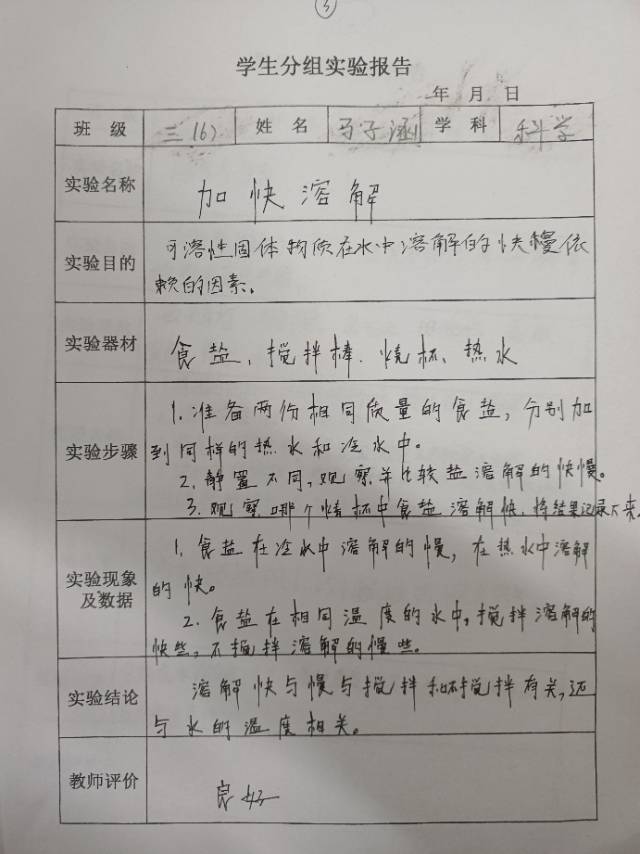 ③
学生分组实验报告
年 月 日
班 级 三(6) 姓 名 马子涵 学 科 科学
实验名称 加快溶解
实验目的 可溶性固体物质在水中溶解的快慢依
赖的因素。
实验器材 食盐、搅拌棒、烧杯、热水
实验步骤 1.准备两份相同质量的食盐,分别加
到同样的热水和冷水中。
2.静置不同,观察并比较盐溶解的快慢。
3.观察哪个烧杯中食盐溶解快,将结果记录下来。
实验现象及数据 1.食盐在冷水中溶解的慢,在热水中溶解
的快。
2.食盐在相同温度的水中,搅拌溶解的
快些,不搅拌溶解的慢些。
实验结论 溶解快与慢与搅拌和不搅拌有关,还
与水的温度相关。
教师评价 良好